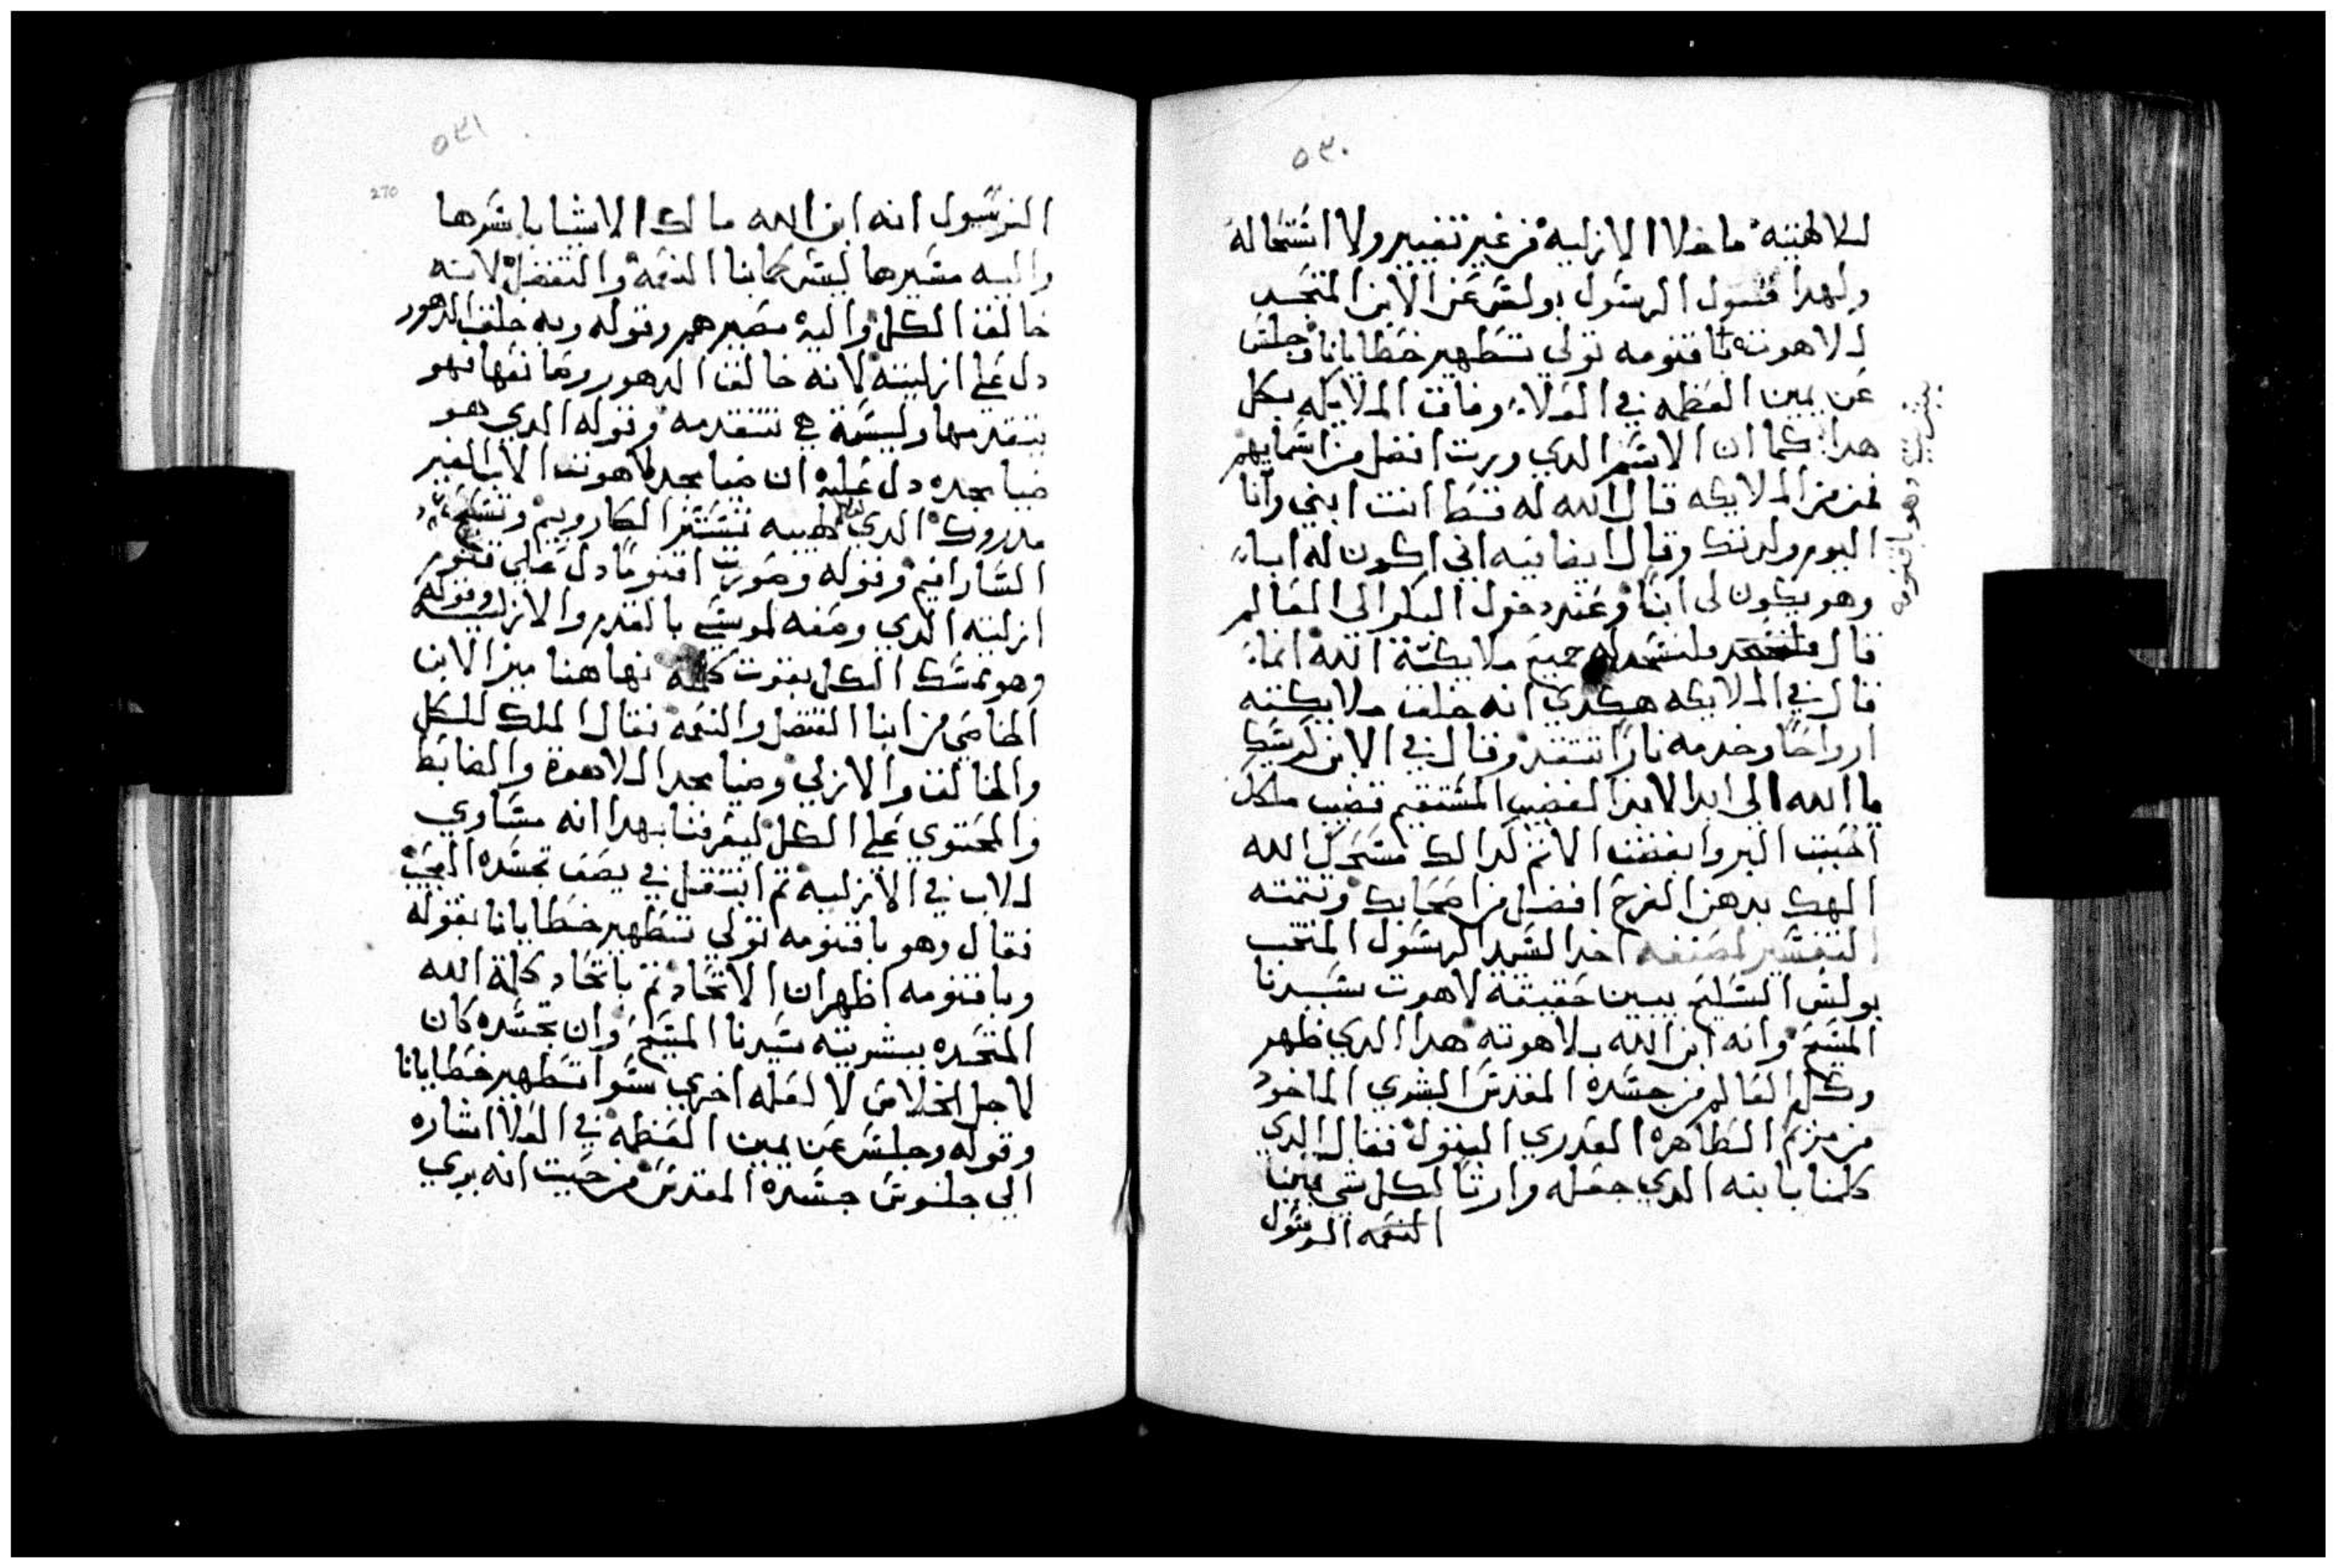 ٥٣٠
للاهيته ما خلا الازليه من غير تغيير ولا استحاله
ولهدا يقول الرسول بولس عن الابن المتجسد
لاهوته باقنومه تولي تطهير خطايانا وجلس
عن يمين العظمه في العلا وفاق الملايكه بكل
هدا كما ان الاسم الدي ورت افضل من اسمايهم
فمن من الملايكه قال الله له قط انت ابني وانا
اليوم ولدتك وقال ايضا فيه اني اكون له ابا
وهو يكون لي ابنا وعند دخول البكر الى العالم
قال فلتسجد له جميع ملايكة الله انما
قال في الملايكه هكدي انه خلق ملايكته
ارواحا وخدمه نارا تتقد وقال في الابن كرسيك
يا الله الى ابد الابد القضيب المستقيم قضيب ملكك
احببت البر وابغضت الاتم لدالك مسحك الله
الهك بدهن الفرح افضل من اصحابك وتتمته
التفسير لمصنفه اخد السيد الرسول المنتخب
بولس السليح يبين حقيقة لاهوت سيدنا
المسيح وانه ابن الله بلاهوته هدا الدي ظهر
وكلم العالم من جسده المقدس البشري الماخود
من مريم الطاهره العدري البتول فقال الدي
كلمنا بابنه الدي جعله وارتا لكل شي
النعمه الرسول
وهو باقنومه
٥٣١
270
الرسول انه ابن الله مالك الاشيا باسرها
واليه مسيرها ليس كابنا النعمة والتفضل لانه
خالق الكل واليه مصيرهم وقوله وبه خلق الدهور
دل على ازليته لانه خالق الدهور وصانعها فهو
يتقدمها وليسة هي تتقدمه وقوله الدي هو
ضيا مجده دل عليه ان ضيا مجد لاهوت الاب الغير
مدروك الدي لهيبه تستتر الكاروبيم وتسبح
السارافيم وقوله وصورت اقنومه دل على قنوم
ازليته الدي وصفه لموسي بالقدم والازليه وقوله
وهو ممسك الكل بقوت كلمته فهاهنا ميز الابن
الخاصي من ابنا التفضل والنعمه فقال الملك للكل
والخالق والازلي وضيا مجد اللاهوة والضابط
والمحتوي على الكل ليعرفنا بهدا انه مساوي
للاب في الازليه تم انتقل في يصف تجسده العجيب
فقال وهو باقنومه تولي تطهير خطايانا بقوله
وباقنومه اظهر ان الاتحاد تم باتحاد كلمة الله
المتحده ببشريته سيدنا المسيح وان تجسده كان
لاجل الخلاص لا لعله اخري سوا تطهير خطايانا
وقوله وجلس عن يمين العظمه في العلا اشاره
الي جلوس جسده المقدس من حيت انه بري